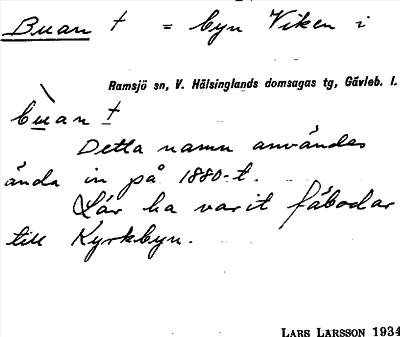 Buan † = byn Viken i
Ramsjö sn, V. Hälsinglands domsagas tg, Gävleb. l.
bù̲an †
Detta namn användes
ända in på 1880-t.
Lär ha varit fäbodar
till Kyrkbyn.
LARS LARSSON 1934